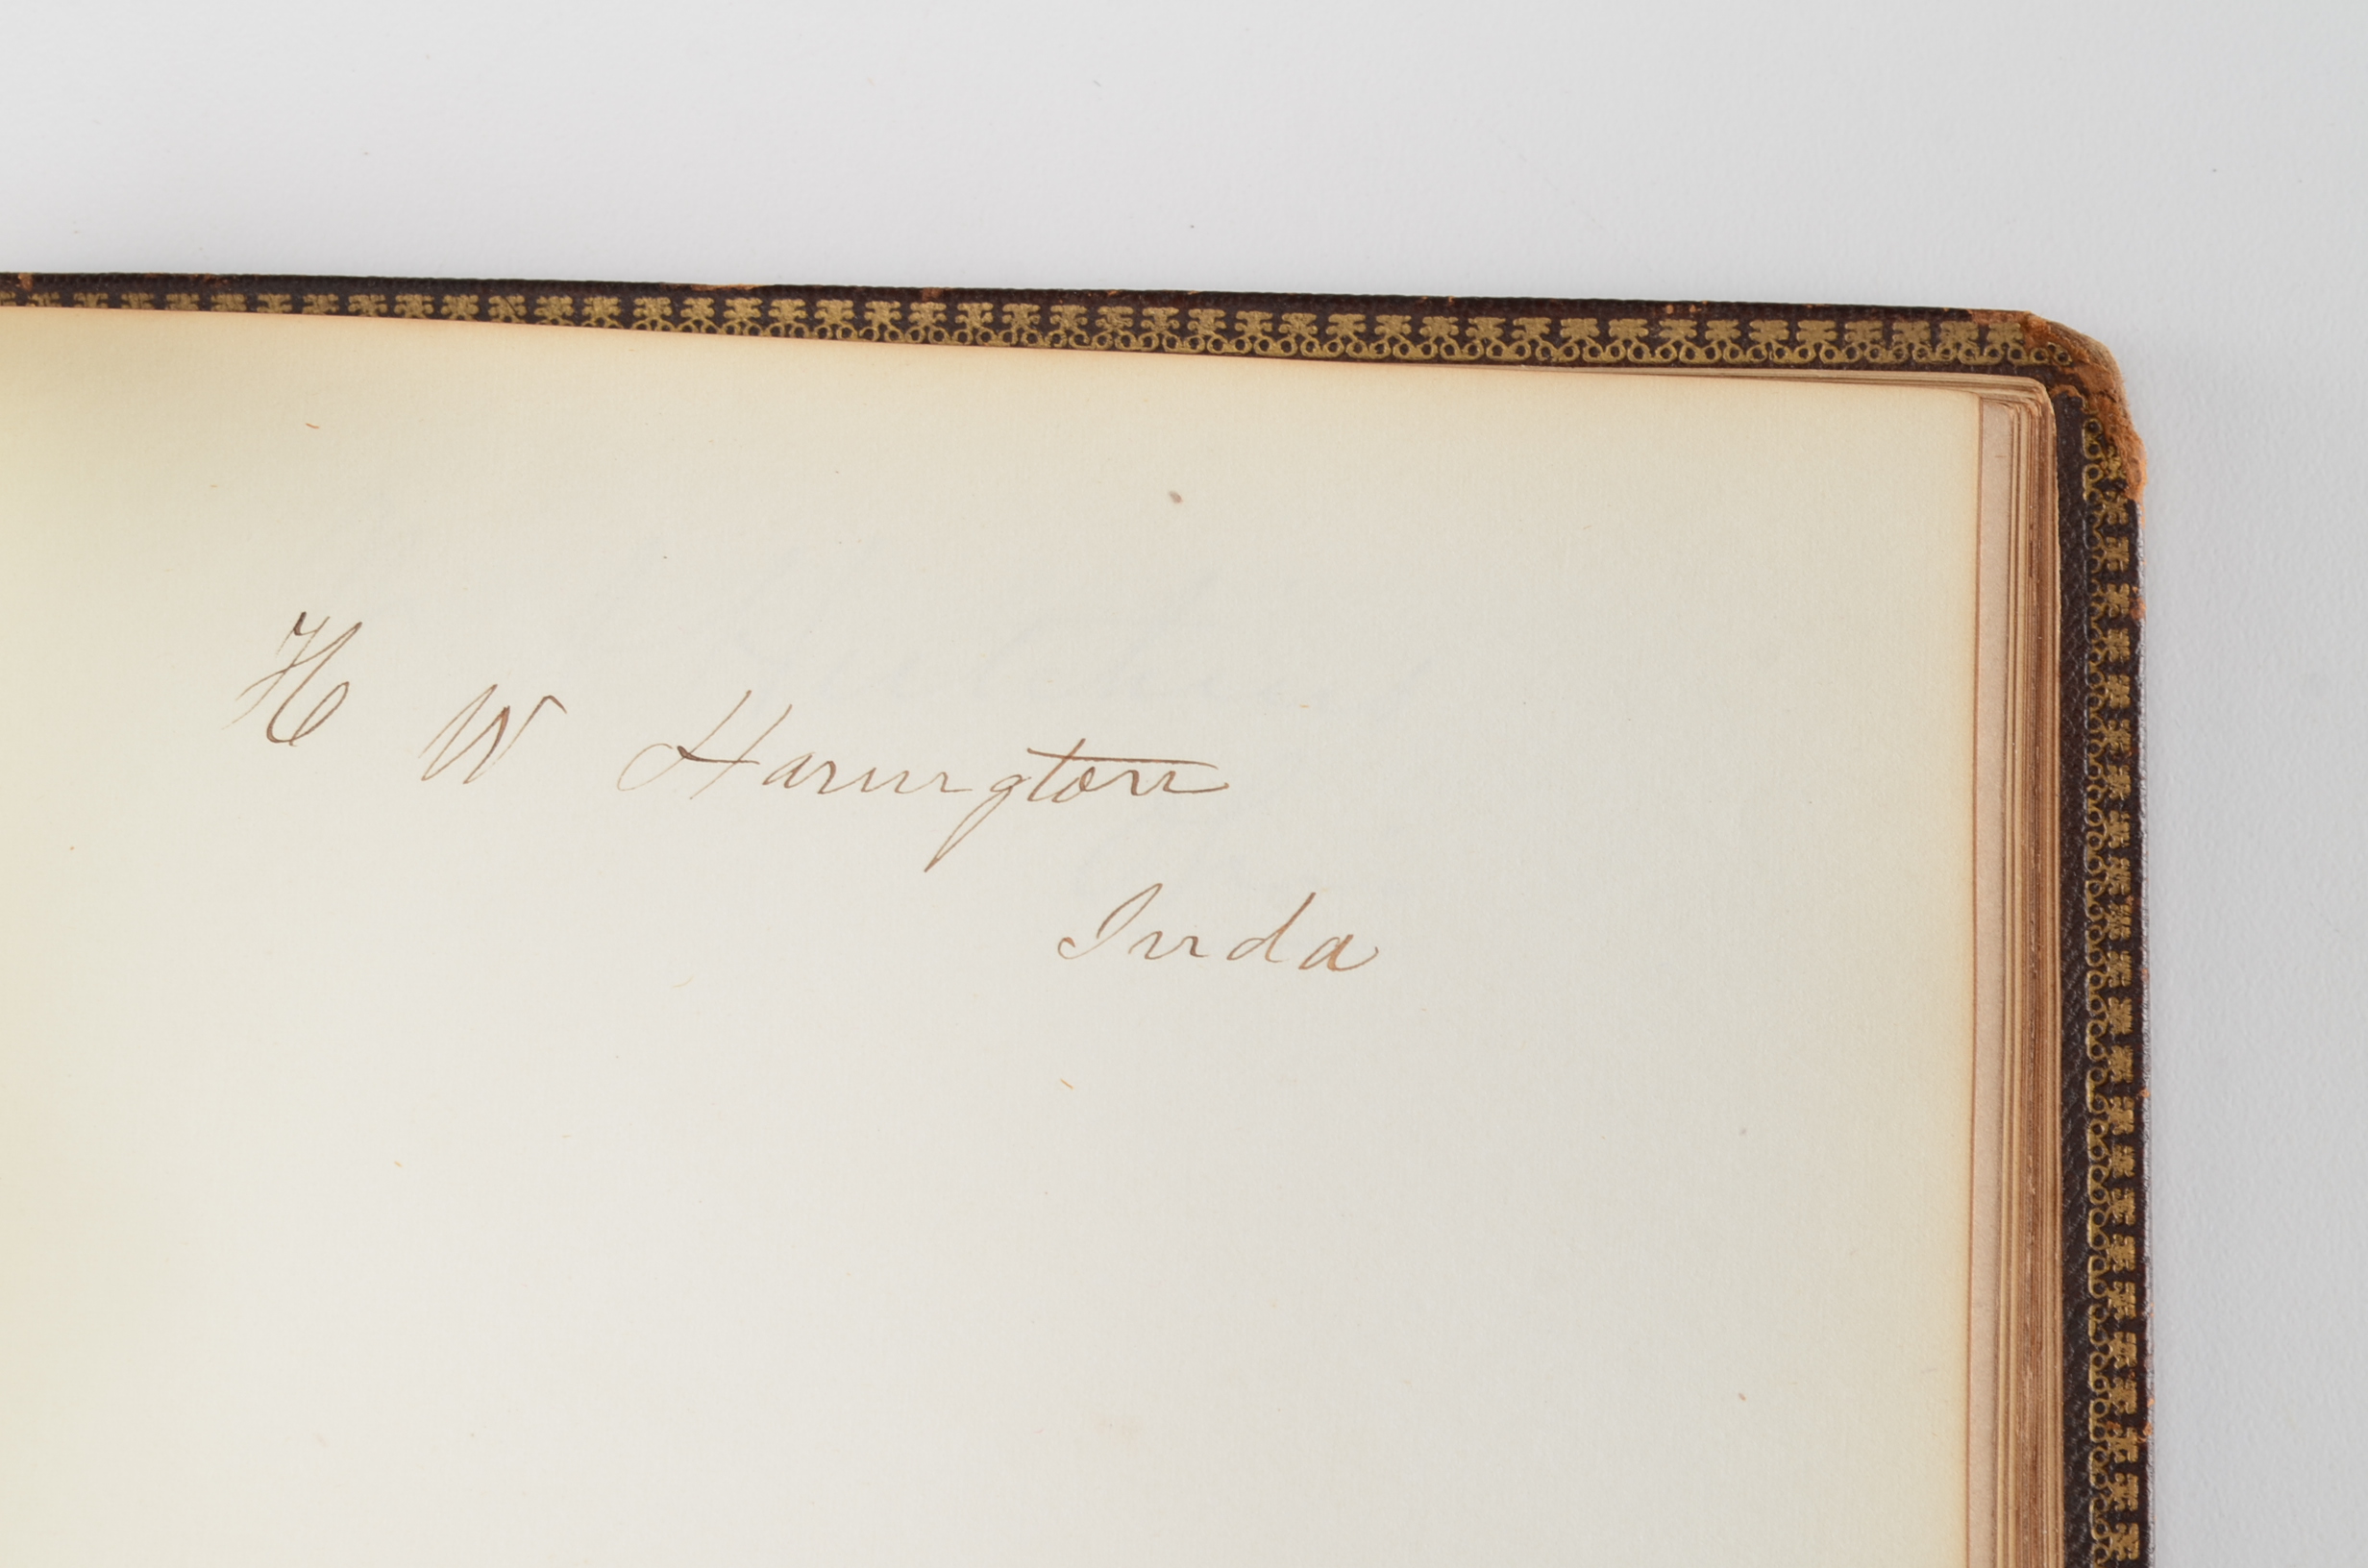 H W Harrington
Inda